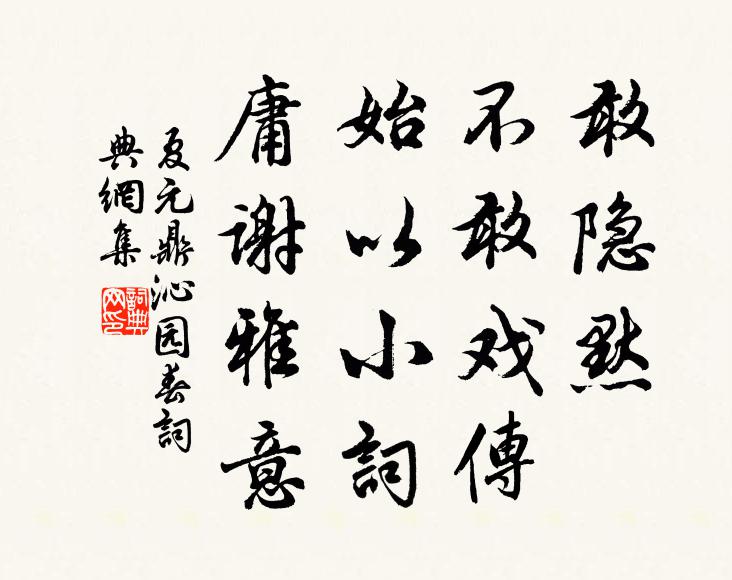 敢隐默
不敢戏傳
始以小詞
庸谢雅意
夏元鼎沁园春詞
典網集
詞典网印